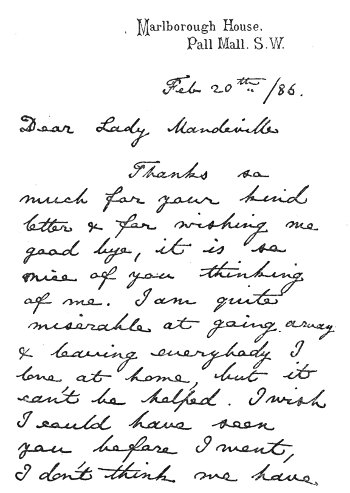 Marlborough House.
Pall Mall. S.W.
Feb 20th /86.
Dear Lady Mandeville
Thanks so
much for your kind
letter & for wishing me
good bye, it is so
nice of you thinking
of me. I am quite
miserable at going away
& leaving everybody I
love, at home, but it
can't be helped. I wish
I could have seen
you before I went,
I don't think we have